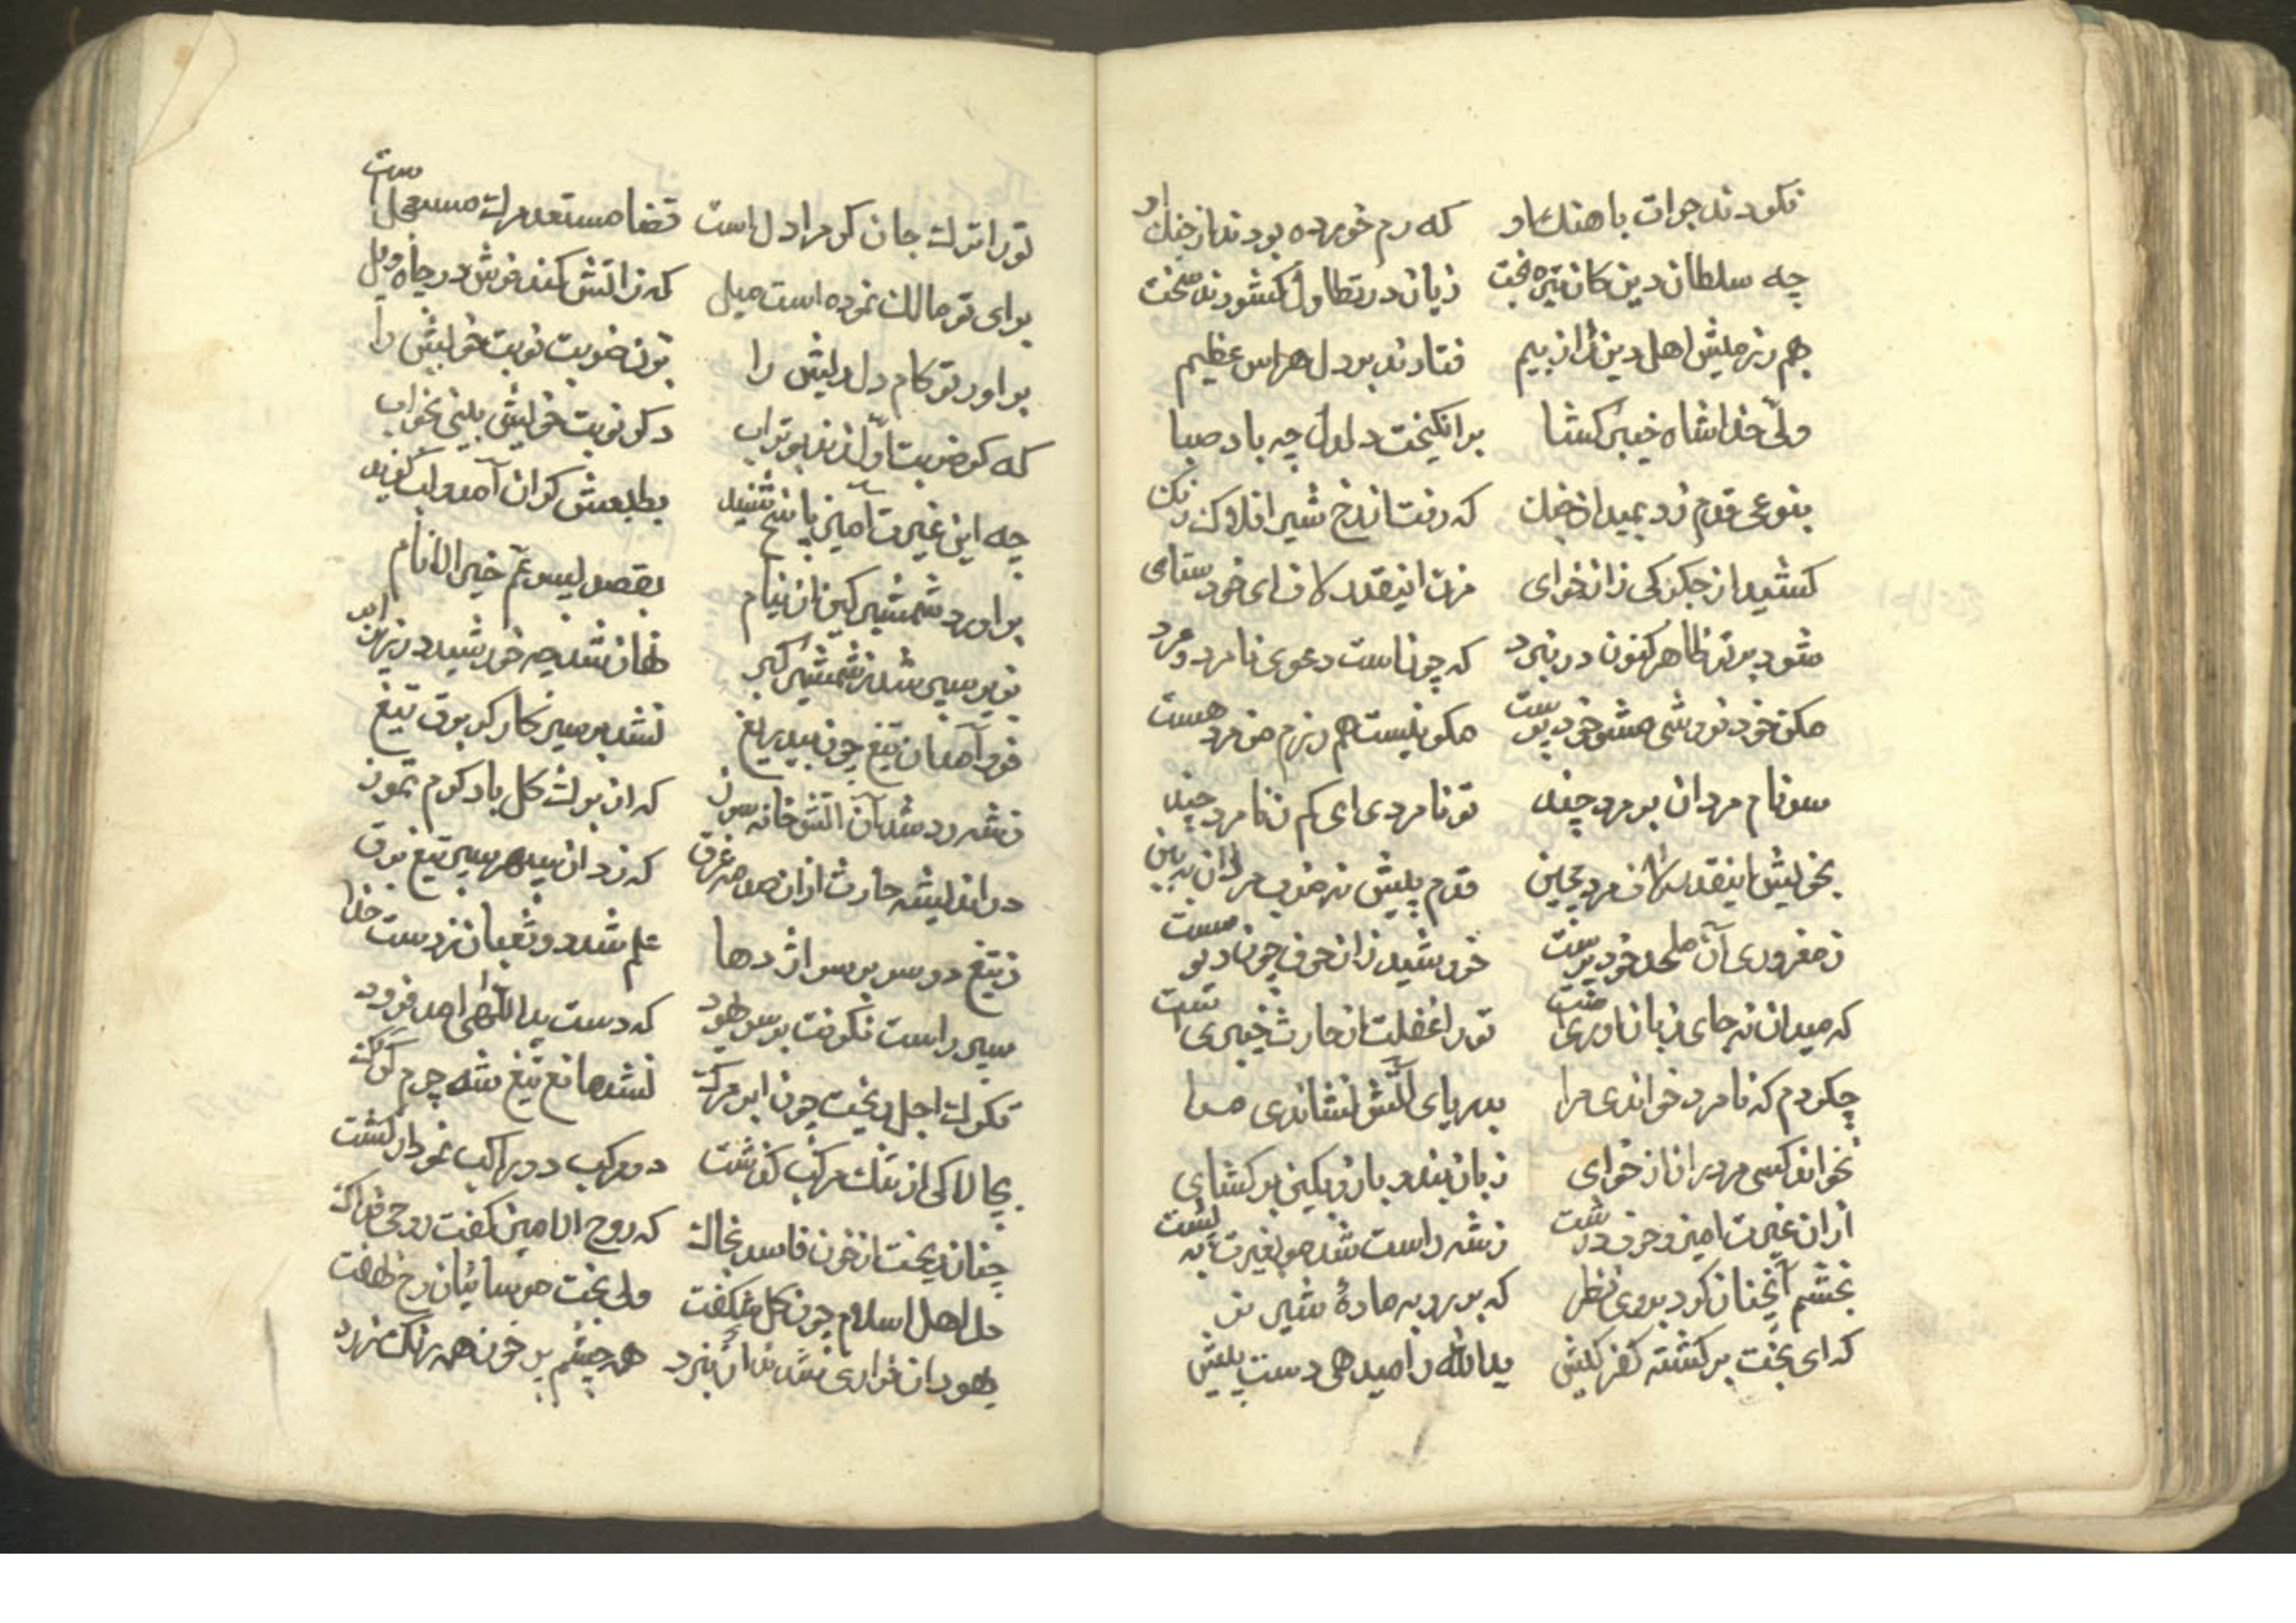 نکردند جرات باهنک او که رم خورده بودند از جنک او
چه سلطان دین کان تیره بخت زبان در تطاول کشودند سخت
هم رزمیش اهل دین را ز بیم فتادند بر دل هراس عظیم
ولی خدا شاه خیبر کشا بر انکیخت دلدل چه باد صبا
بنوعی قدم زد بمیدان جنک که رفت از رخ شیر افلاک رنک
کشید از جکر کی زاژخوای مزن اینقدر لاف ای خودستای
شود بر تو ظاهر کنون در نبرد که چونست دعوی نامرد و مرد
مکن خودفروشی مشو خودپرست مکو نیست هم رزم من مرد هست
سر نام مردان بر مرد چند تو نامردی ای کم ز نامرد چند
بخویش اینقدر لاف مردی مچین قدم پیش نه ضرب مردان ببین
ز مغروری آن ملحد خودپرست خروشید زان حرف چون دیو مست
که میدان نه جای زبان آوری است تو را غفلت از حارث خیبری است
چکردم که نامرد خواندی مرا بدریای آتش نشاندی مرا
نخواند کسی مرد را ژاژخوای زبان بند و بازو بکین برکشای
ازان غیرت آمیز حرف درشت ز شه راست شد مو بغیرت به پشت
بخشم آنچنان کرد بروی نظر که بر روبه ماده شیر نر
که ای بخت برکشته کفر کیش یدالله را میدهی دست پیش
تو را ترک جان کر مراد دل است قضا مستعد مرک مستعجل است
برای تو مالک نموده است میل که ز آتش کند فرش در چاه ویل
بر آور تو کام دل ریش را بزن ضربت نوبت خویش را
که کر ضربت اول زند بوتراب دکر نوبت خویش بینی بخواب
چه این غیرت آمیز پاسخ شنید بطبعش کران آمد و لب کزید
بر آورد شمشیر کین از نیام بقصد پسر عم خیر الانام
بزیر سپر شد ز شمشیر کبر نهان شد چه خورشید در زیر ابر
فرود آمد آن تیغ چون بیدریغ نشد بر سپر کارکر برق تیغ
ز شه رد شد آن آتش خانه سوز که از برک کل باد کرم تموز
در اندیشه حارث ازان صدمه غرق که زد از سپهر سپر تیغ برق
ز تیغ دو سر بر سر اژدها علم شد دو ثعبان ز دست خدا
سپر راست نکرفت بر سر هنود که دست یداللهی آمد فرود
تکرک اجل ریخت چون ابر مرک نشد مانع تیغ شه چرم کرک
بچالاکی از تنک مرکب کذشت دو مرکب دو راکب نمودار کشت
چنان ریخت از خون فاسد بخاک که روح الامین کفت روحی فداک
دل اهل اسلام چون کل شکفت ولی بخت موسائیان رخ نهفت
یهودان فراری شدند از نبرد همه چشم پر خون همه رنک زرد